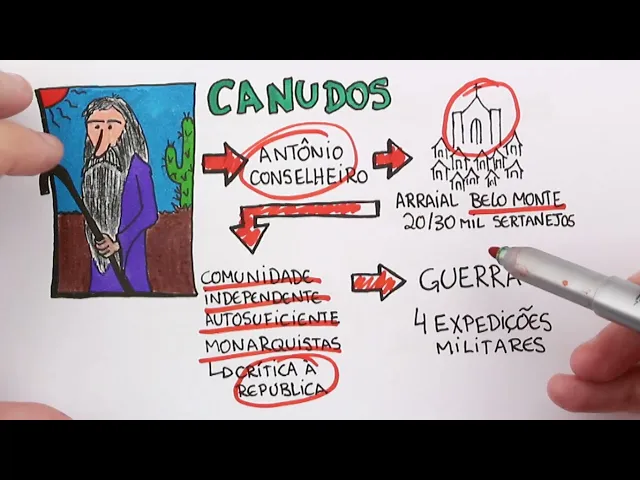 CANUDOS
ANTÔNIO
CONSELHEIRO
ARRAIAL BELO MONTE
20/30 MIL SERTANEJOS
COMUNIDADE
INDEPENDENTE
AUTOSUFICIENTE
MONARQUISTAS
CRÍTICA À
REPÚBLICA
GUERRA
4 EXPEDIÇÕES
MILITARES